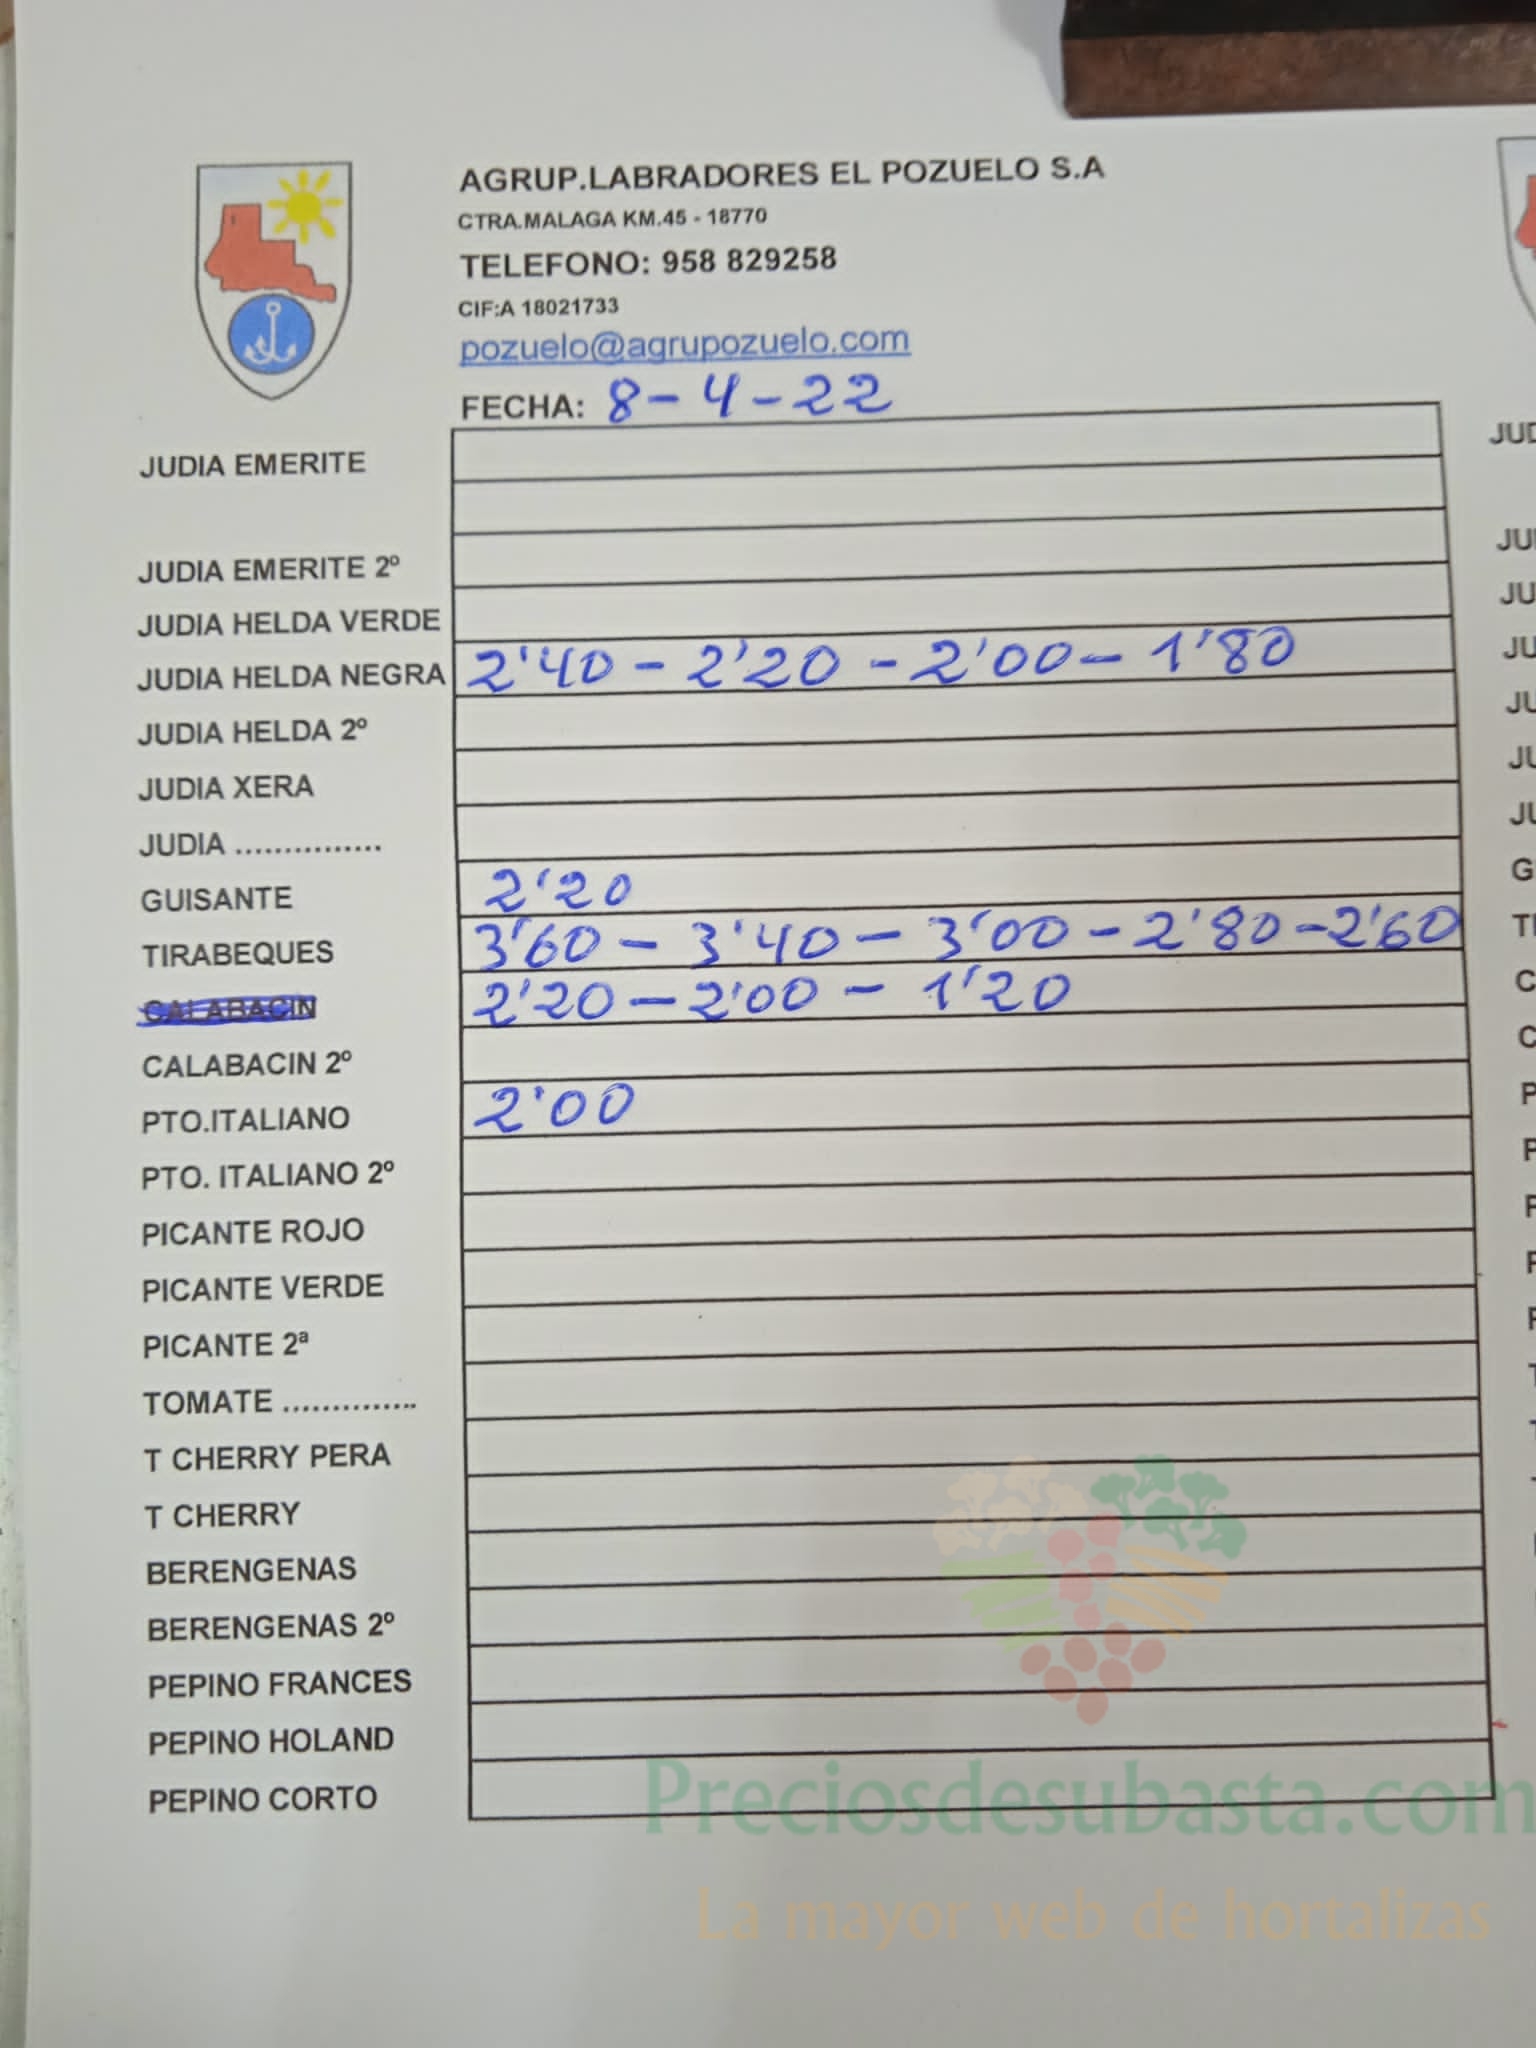 AGRUP.LABRADORES EL POZUELO S.A
CTRA.MALAGA KM.45 - 18770
TELEFONO: 958 829258
CIF:A 18021733
pozuelo@agrupozuelo.com
FECHA: 8-4-22
JUDIA EMERITE
JUDIA EMERITE 2º
JUDIA HELDA VERDE
JUDIA HELDA NEGRA 2'40 - 2'20 - 2'00 - 1'80
JUDIA HELDA 2º
JUDIA XERA
JUDIA ...............
GUISANTE 2'20
TIRABEQUES 3'60 - 3'40 - 3'00 - 2'80 - 2'60
CALABACIN 2'20 - 2'00 - 1'20
CALABACIN 2º
PTO.ITALIANO 2'00
PTO. ITALIANO 2º
PICANTE ROJO
PICANTE VERDE
PICANTE 2ª
TOMATE ..............
T CHERRY PERA
T CHERRY
BERENGENAS
BERENGENAS 2º
PEPINO FRANCES
PEPINO HOLAND
PEPINO CORTO
Preciosdesubasta.com
La mayor web de hortalizas